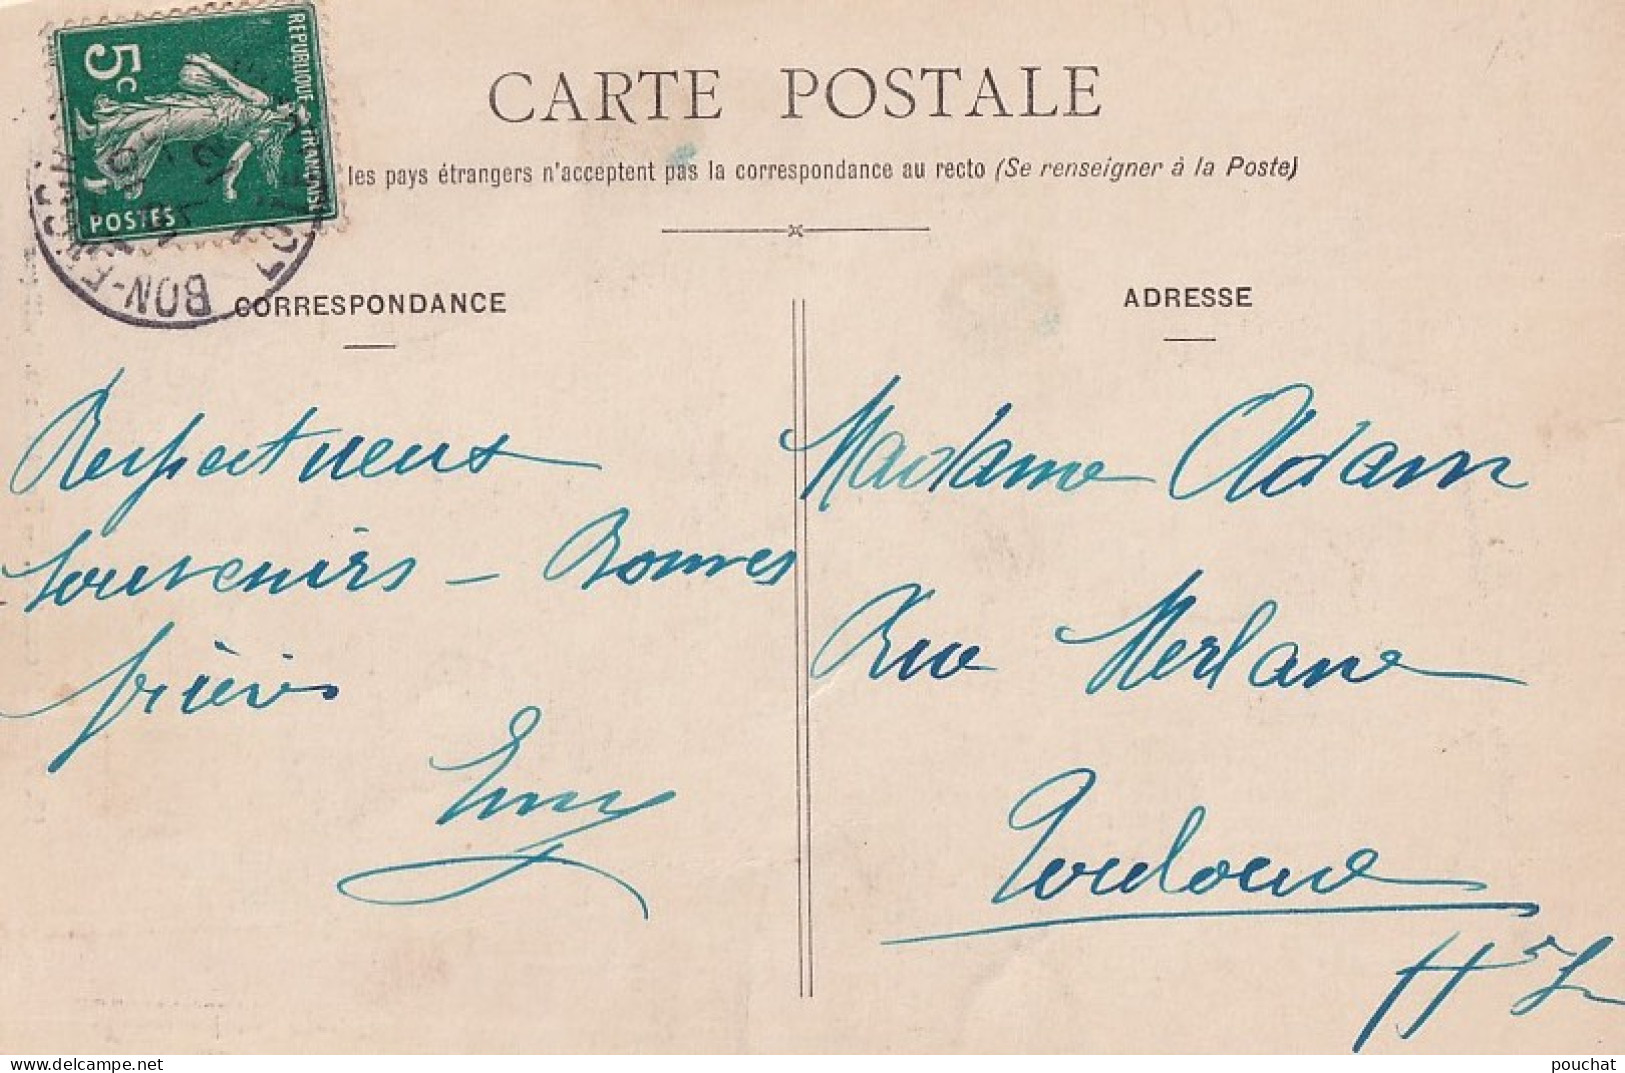 REPUBLIQUE FRANÇAISE
5c
POSTES
CARTE POSTALE
les pays étrangers n'acceptent pas la correspondance au recto (Se renseigner à la Poste)
BON-ENCON
CORRESPONDANCE
Respectueux
souvenirs – Bonnes
ADRESSE
Madame Adam
Rue Merlane
Toulouse
pouchat